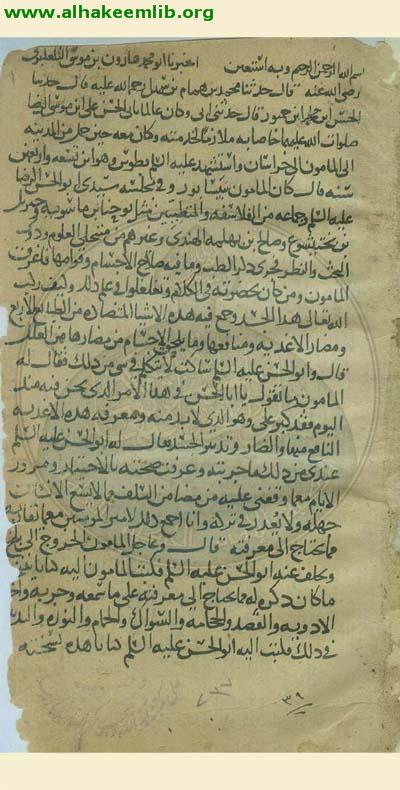 www.alhakeemlib.org
بسم الله الرحمن الرحيم وبه استعين اخبرنا ابو محمد هارون بن موسى التلعكبرى
رضى الله عنه قال حدثنا محمد بن همام بن سهيل رحمه الله عليه قال حدثنا
الحسن بن محمد بن جمهور قال حدثنى ابى وكان عالما بابى الحسن على ابن موسى الرضا
صلوات الله عليهما خاصا به ملازما لخدمته وكان معه حين حمل من المدينه
الى المامون الى خراسان واستشهد عليه السلم بطوس وهو ابن تسعه واربعين
سنه قال كان المامون بنيسابور وفى مجلسه سيدى ابو الحسن الرضا
عليه السلم وجماعه من الفلاسفه والمتطببين مثل يوحنا بن ماسويه وجبريل
بن بختيشوع وصالح بن بهلمه الهندى وغيرهم من منتحلى العلوم وذوى
البحث والنظر فجرى ذكر الطب وما فيه صلاح الاجسام وقوامها فاغرق
المامون ومن كان بحضرته فى الكلام وتغلغلوا فى علم ذلك وكيف ركب
الله تعالى هذا الجسد وجمع فيه هذه الاشيا المتضاده من الطبايع الاربع
ومضار الاغذيه ومنافعها وما يلحق الاجسام من مضارها من العلل
قال وابو الحسن عليه السلم ساكت لا يتكلم فى شى من ذلك فقال له
المامون ما تقول يا ابا الحسن فى هذا الامر الذى نحن فيه منذ
اليوم فقد كبر على وهو الذى لا بد منه ومعرفه هذه الاغذيه
النافع منها والضار وتدبير الجسد فقال له ابو الحسن عليه السلم
عندى من ذلك ما جربته وعرفت صحته بالاختبار ومرور
الايام مع ما وقفنى عليه من مضا من السلف مما لا يسع الانسان
جهله ولا يعذر فى تركه وانا اجمع ذلك لامير المومنين مع ما يقاربه
مما يحتاج الى معرفته قال وعاجل المامون الخروج الى بلخ
وتخلف عنه ابو الحسن عليه السلم فكتب المامون اليه كتابا يتنجز
ما كان ذكره له مما يحتاج الى معرفته على ما سمعه وجربه
الادويه والفصد والحجامه والسواك والحمام والنوره والتدبير
فى ذلك فكتب اليه ابو الحسن عليه السلم كتابا هذه نسخته
٣٩